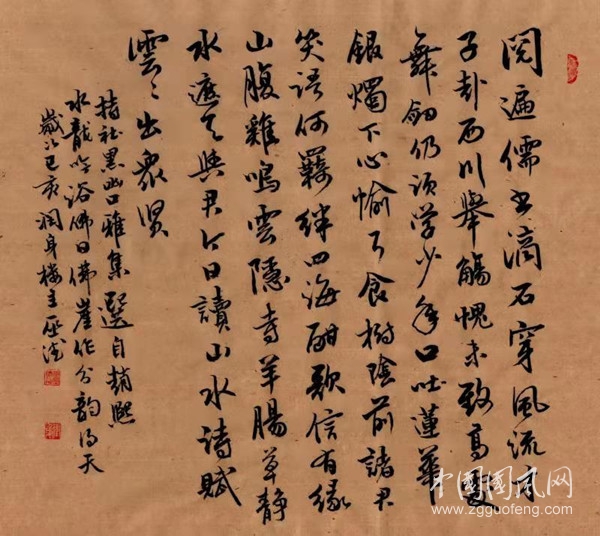 閱遍儒書滴石穿風流才
子赴西川舉觴愧未致高
舞劍仍須學少年口吐蓮華
銀燭下心愉食樹陰前諸君
笑語何羈絆四海酣歌信有緣
山腹雞鳴雲隱寺羊腸草靜
水遮天與君今日讀山水詩賦
雲〻出眾賢
持社黑幽口雅集選自趙熙
水龍吟浴佛日佛崖作分韻得天
歲次己亥潤身樓主
中國國風网
www.zgguofeng.com